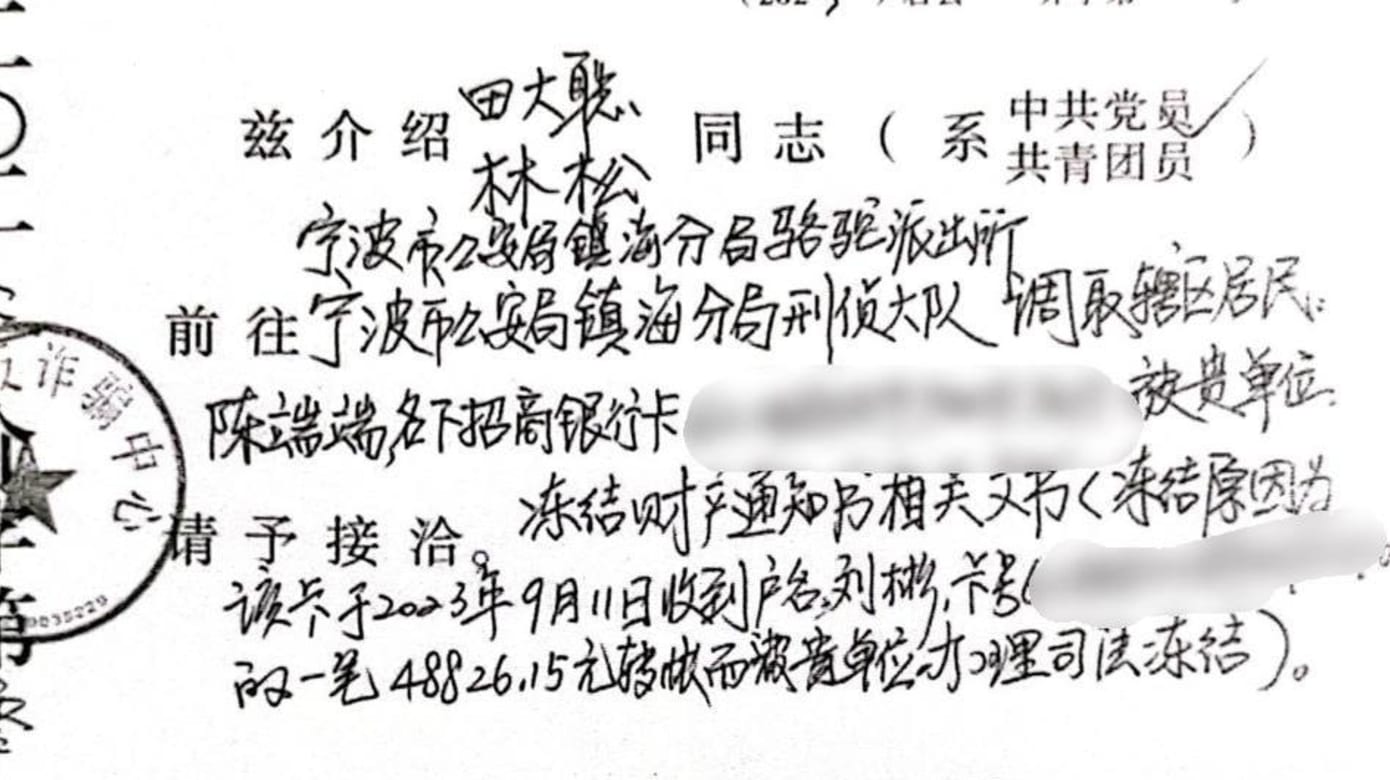 兹介绍 田大聪 同志（系 中共党员 ）
林松 共青团员
宁波市公安局镇海分局骆驼派出所
前往宁波市公安局镇海分局刑侦大队 调取辖区居民
陈端端,名下招商银行卡 被贵单位
请予接洽。冻结财产通知书相关文书(冻结原因为
该卡于2023年9月11日收到户名,刘彬,卡号(
的一笔48826.15元转帐而被贵单位办理司法冻结)。
诈骗中心